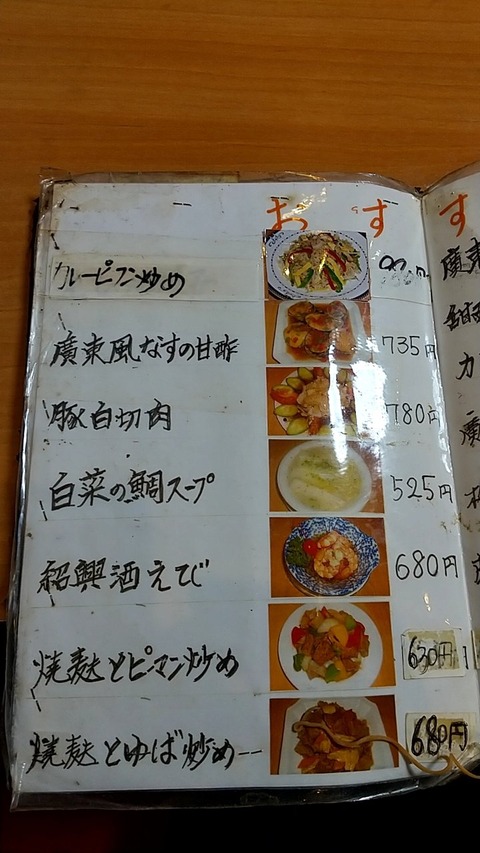 おすす
カレービーフン炒め
廣東風なすの甘酢 735円
豚白切肉 780円
白菜の鯛スープ 525円
紹興酒えび 680円
焼麸とピーマン炒め 630円
焼麸とゆば炒め 680円
廣東
カ